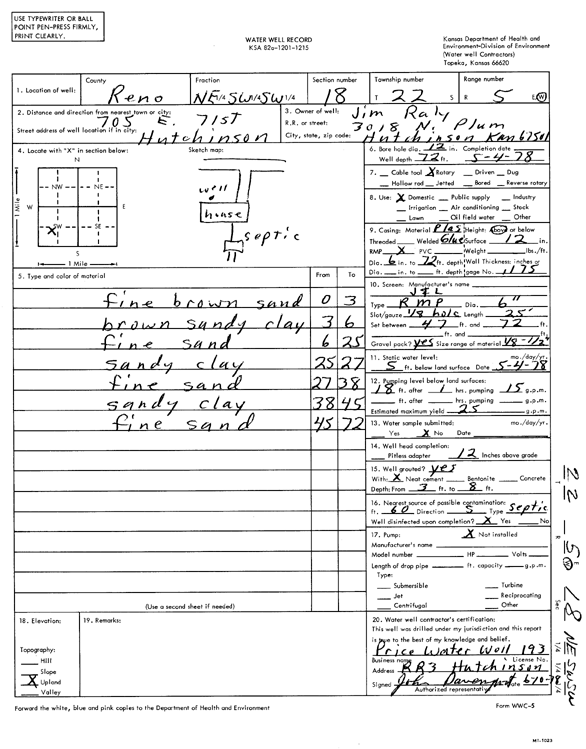 USE TYPEWRITER OR BALL
POINT PEN-PRESS FIRMLY,
PRINT CLEARLY.
WATER WELL RECORD
KSA 82a-1201-1215
Kansas Department of Health and
Environment-Division of Environment
(Water well Contractors)
Topeka, Kansas 66620
1. Location of well: County Reno Fraction NE 1/4 SW 1/4 SW 1/4 Section number 18 Township number T 22 S Range number R 5 E/W
2. Distance and direction from nearest town or city: 705 E. 71st
Street address of well location if in city: Hutchinson
3. Owner of well: Jim Raly
R.R. or street: 3018 N. Plum
City, state, zip code: Hutchinson Kan 67501
4. Locate with "X" in section below:
N
NW NE
W E
SW SE
X
S
1 Mile
1 Mile
Sketch map:
well
house
septic
5. Type and color of material From To
fine brown sand 0 3
brown sandy clay 3 6
fine sand 6 25
sandy clay 25 27
fine sand 27 38
sandy clay 38 45
fine sand 45 72
(Use a second sheet if needed)
6. Bore hole dia. 12 in. Completion date
Well depth 72 ft. 5-4-78
7. Cable tool X Rotary Driven Dug
Hollow rod Jetted Bored Reverse rotary
8. Use: X Domestic Public supply Industry
Irrigation Air conditioning Stock
Lawn Oil field water Other
9. Casing: Material Plas Height: Above or below
Threaded Welded Glue Surface 12 in.
RMP X PVC Weight lbs./ft.
Dia. 6 in. to 72 ft. depth Wall Thickness: inches or
Dia. in. to ft. depth gage No. .175
10. Screen: Manufacturer's name
J&L
Type RMP Dia. 6"
Slot/gauze 1/8 hole Length 25'
Set between 47 ft. and 72 ft.
ft. and ft.
Gravel pack? yes Size range of material 1/8-1/2"
11. Static water level: mo./day/yr.
5 ft. below land surface Date 5-4-78
12. Pumping level below land surfaces:
18 ft. after 1 hrs. pumping 15 g.p.m.
ft. after hrs. pumping g.p.m.
Estimated maximum yield 25 g.p.m.
13. Water sample submitted: mo./day/yr.
Yes X No Date
14. Well head completion:
Pitless adapter 12 Inches above grade
15. Well grouted? yes
With: X Neat cement Bentonite Concrete
Depth: From 3 ft. to 8 ft.
16. Nearest source of possible contamination:
ft. 60 Direction S Type septic
Well disinfected upon completion? X Yes No
17. Pump: X Not installed
Manufacturer's name
Model number HP Volts
Length of drop pipe ft. capacity g.p.m.
Type:
Submersible Turbine
Jet Reciprocating
Centrifugal Other
18. Elevation:
Topography:
Hill
Slope
X Upland
Valley
19. Remarks:
20. Water well contractor's certification:
This well was drilled under my jurisdiction and this report
is true to the best of my knowledge and belief.
Price Water Well 193
Business name License No.
Address RR3 Hutchinson
Signed John Davenport Date 6-10-78
Authorized representative
Forward the white, blue and pink copies to the Department of Health and Environment
Form WWC-5
T 22 - R 5 E W Sec 18 1/4 1/4 1/4 NE SW SW